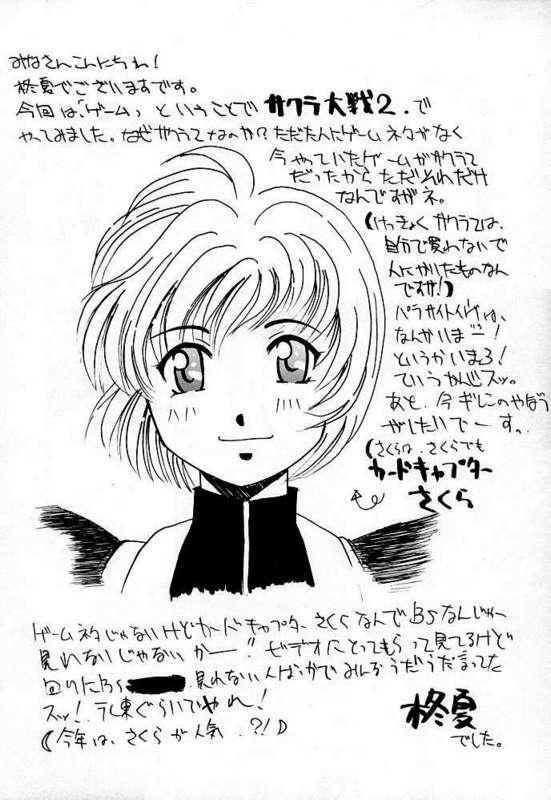 みなさんこんにちわ!
柊夏でございますです。
今回は「ゲーム」ということでサクラ大戦2.で
やってみました。なぜサクラ大なのか?ただたんにゲームネタがなく
今やっていたゲームがサクラ大
だったからただそれだけ
なんですがネ。
(けっきょくサクラ大は、
自分で買わないで
人にかりたものなん
ですが!)
パラサイトイヴは、
なんかいまニー!
というかいまろ!
ていうかんじスッ。
あと、今ギレンのやぼう
がしたいでーす。
(さくらは、さくらでも
カードキャプター
さくら
ゲームネタじゃないけどカードキャプターさくらなんでBSなんじゃー
見れないじゃないかー!!ビデオにとってもらって見てるけど
回りにBS 見れない人ばっかでみんなうだうだまってた
スッ!テレ東ぐらいでやれ!
(今年は、さくらが人気.?!)
柊夏
でした。